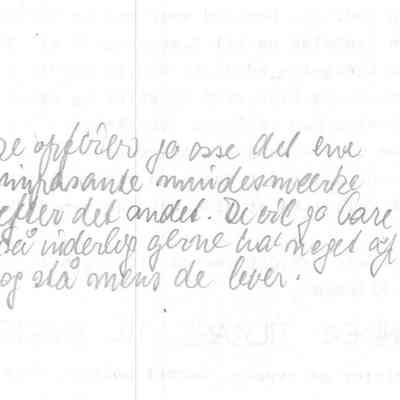 opfører jo osse det ene
imposante mindesmærke
efter det andet. De vil jo bare
så inderlig gerne ha' meget af
og stå mens de lever.